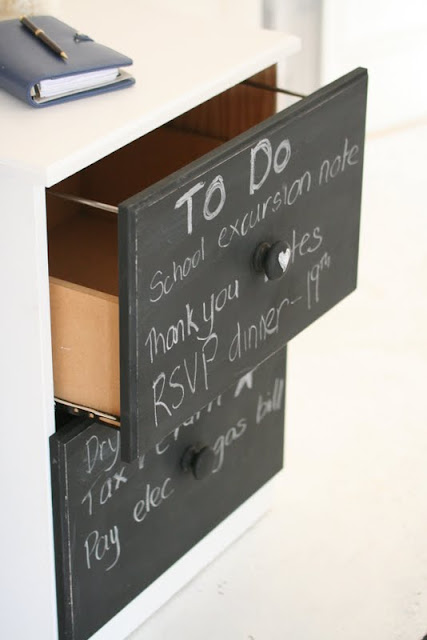 To Do
School excursion note
Thank you
RSVP dinner - 19th
Dry
Tax return
Pay elec gas bill